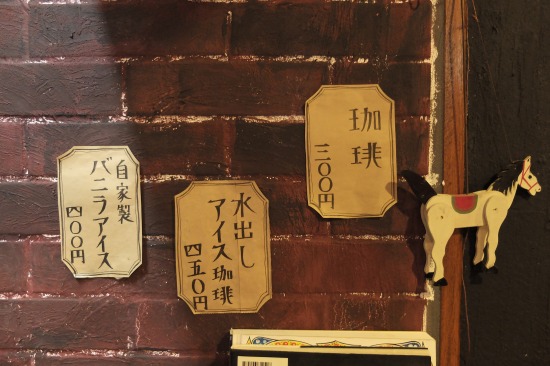 珈琲
三〇〇円
水出し
アイス珈琲
四五〇円
自家製
バニラアイス
四〇〇円